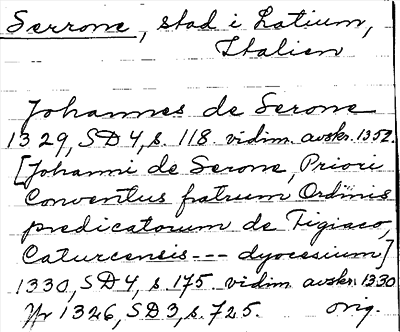 Serrone, stad i Latium,
Italien
Johannes de Serone
1329, SD4, s. 118 vidim. avskr. 1352.
[Johanni de Serone, Priori
Conventus fratrum Ordinis
predicatorum de Figiaco,
Caturcensis --- dyocesium]
1330, SD4, s. 175 vidim. avskr. 1330
Jfr 1326, SD3, s. 725. orig.